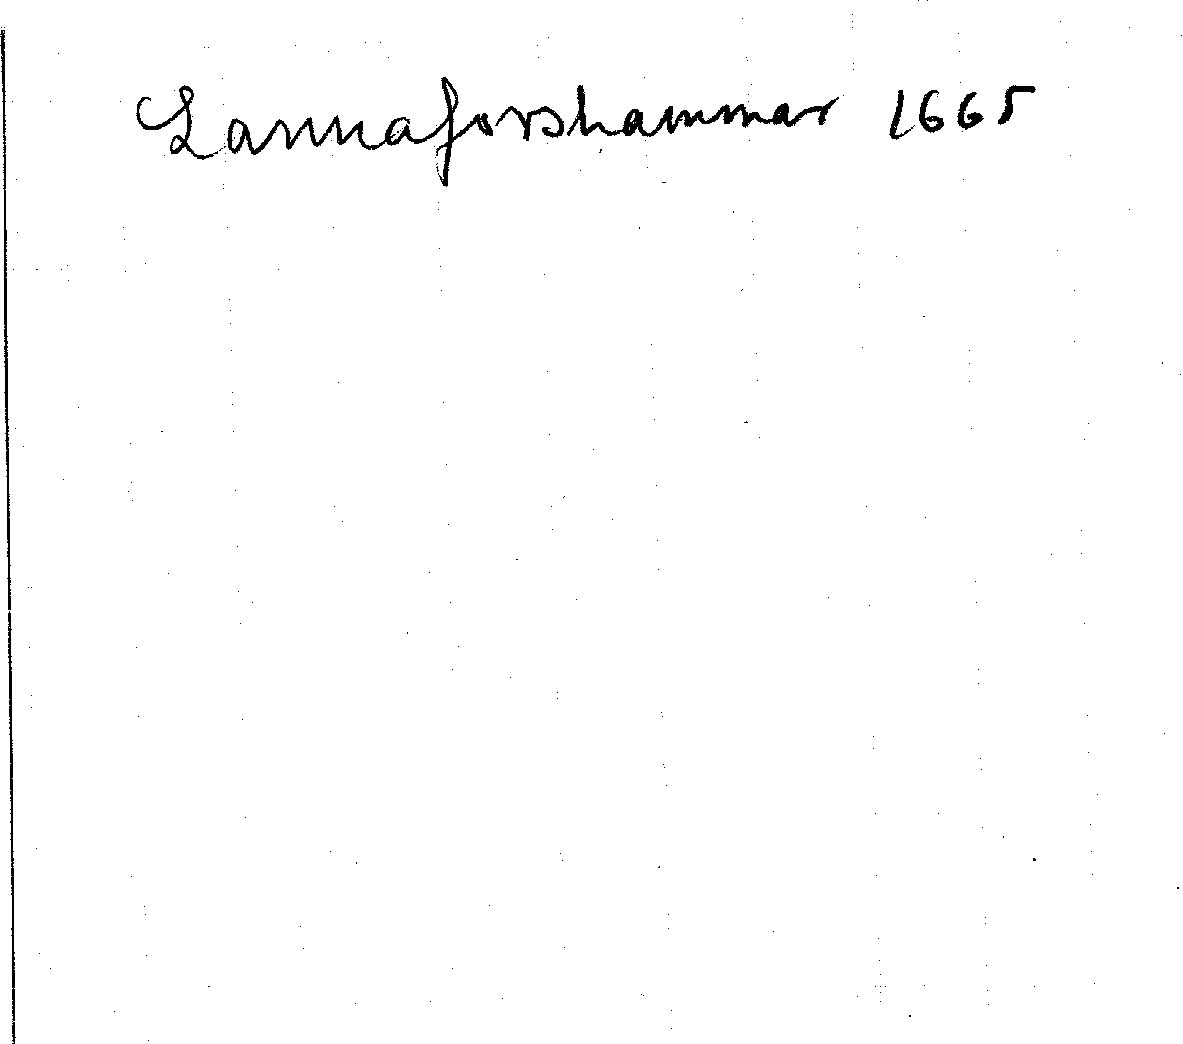 Lannaforshammar 1665